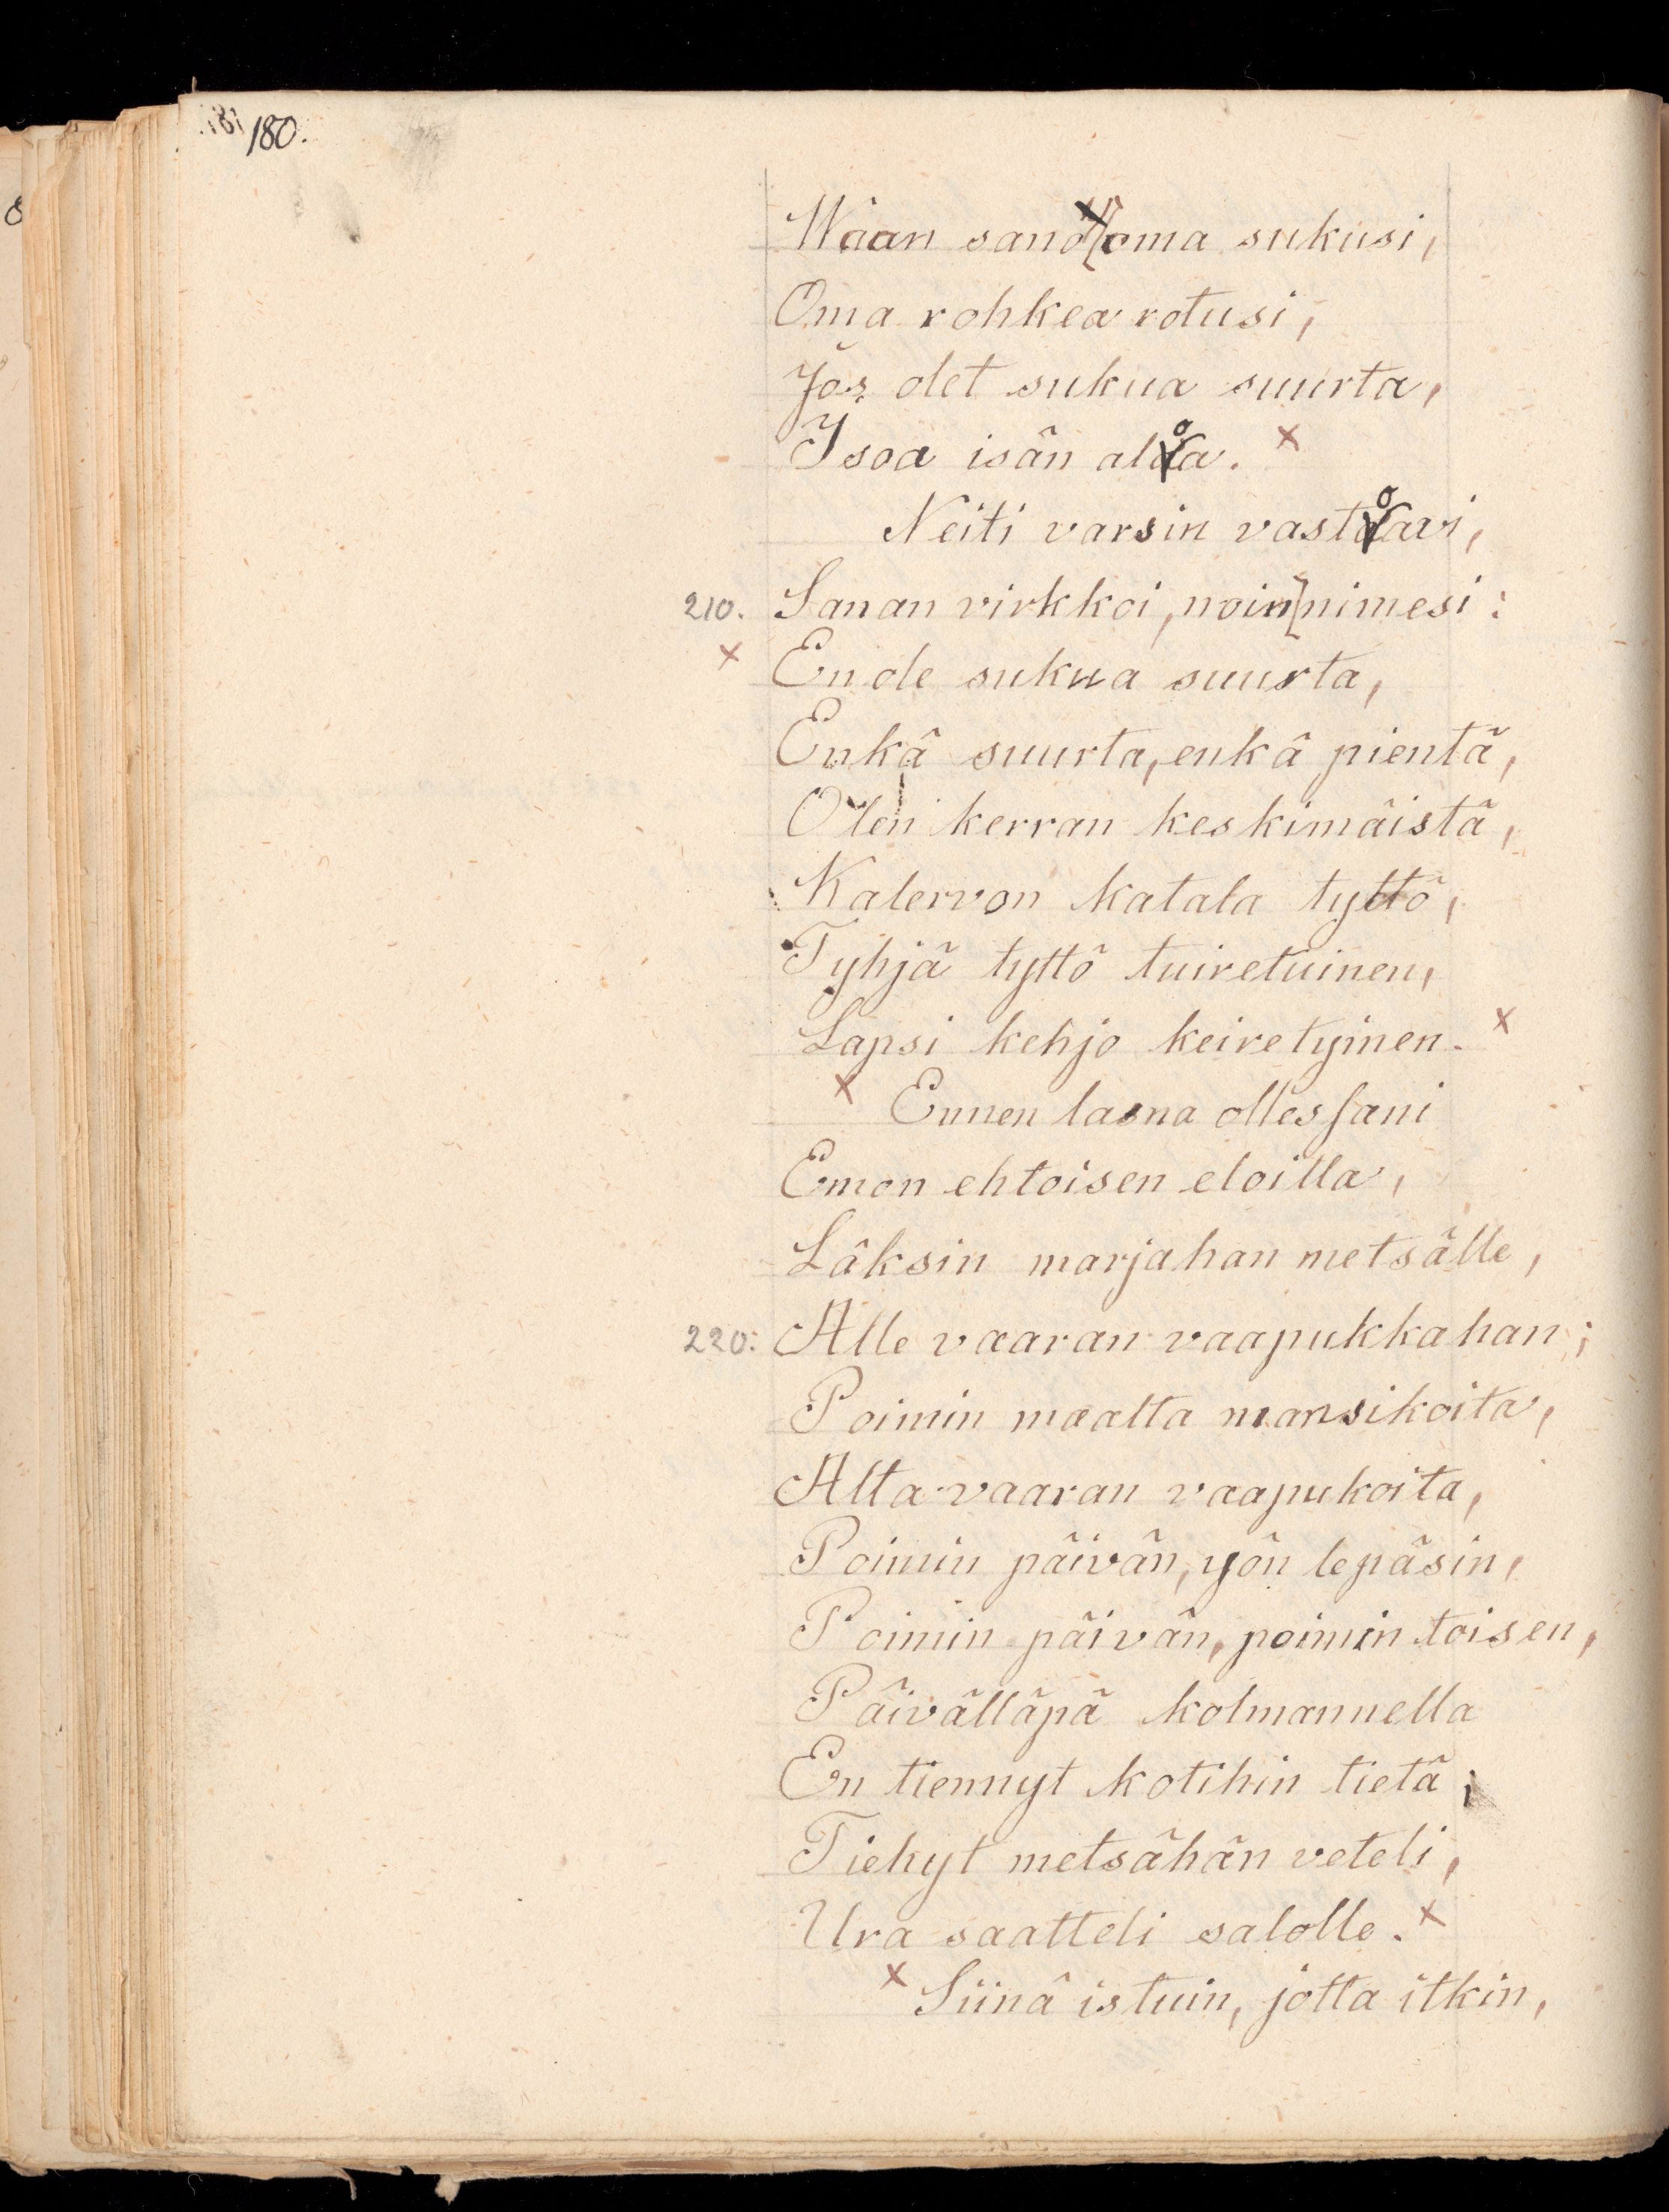 181 180.
Waan sano oma sukusi,
Oma rohkea rotusi,
Jos olet sukua suurta,
Isoa isän aloa. x
Neiti varsin vastoavi,
210. Sanan virkkoi, noin nimesi:
x En ole sukua suurta,
Enkä suurta, enkä pientä,
Olen kerran keskimäistä,
Kalervon katala tyttö,
Tyhjä tyttö tuiretuinen,
Lapsi kehjo keiretyinen. x
x Ennen lasna ollessani
Emon ehtoisen eloilla,
Läksin marjahan metsälle,
220. Alle vaaran vaapukkahan;
Poimin maalta mansikoita,
Alta vaaran vaapukoita,
Poimin päivän, yön lepäsin,
Poimin päivän, poimin toisen,
Päivälläpä kolmannella
En tiennyt kotihin tietä;
Tiehyt metsähän veteli,
Ura saatteli salolle. x
x Siinä istuin, jotta itkin,